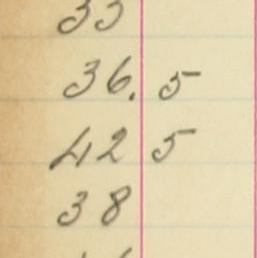 36.5
42 5
38